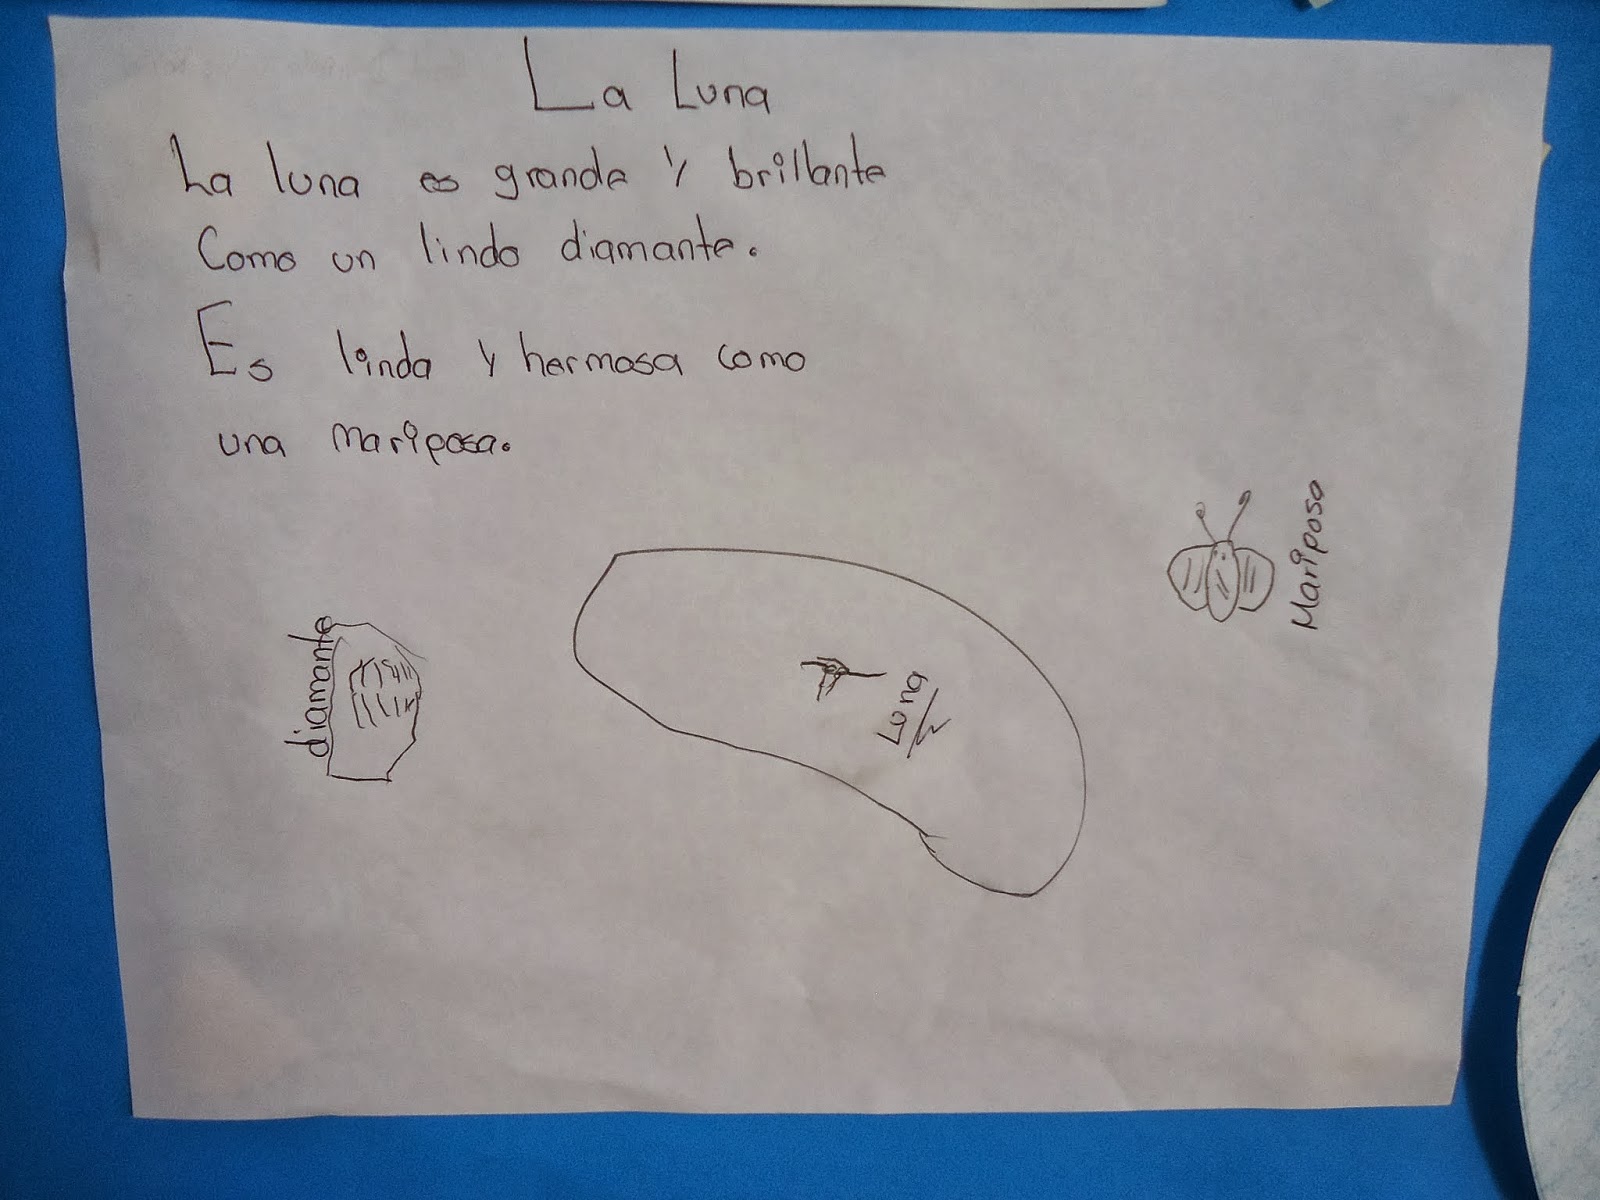 La Luna
La luna es grande y brillante
Como un lindo diamante.
Es linda y hermosa como
una mariposa.
Mariposa
diamante
Luna